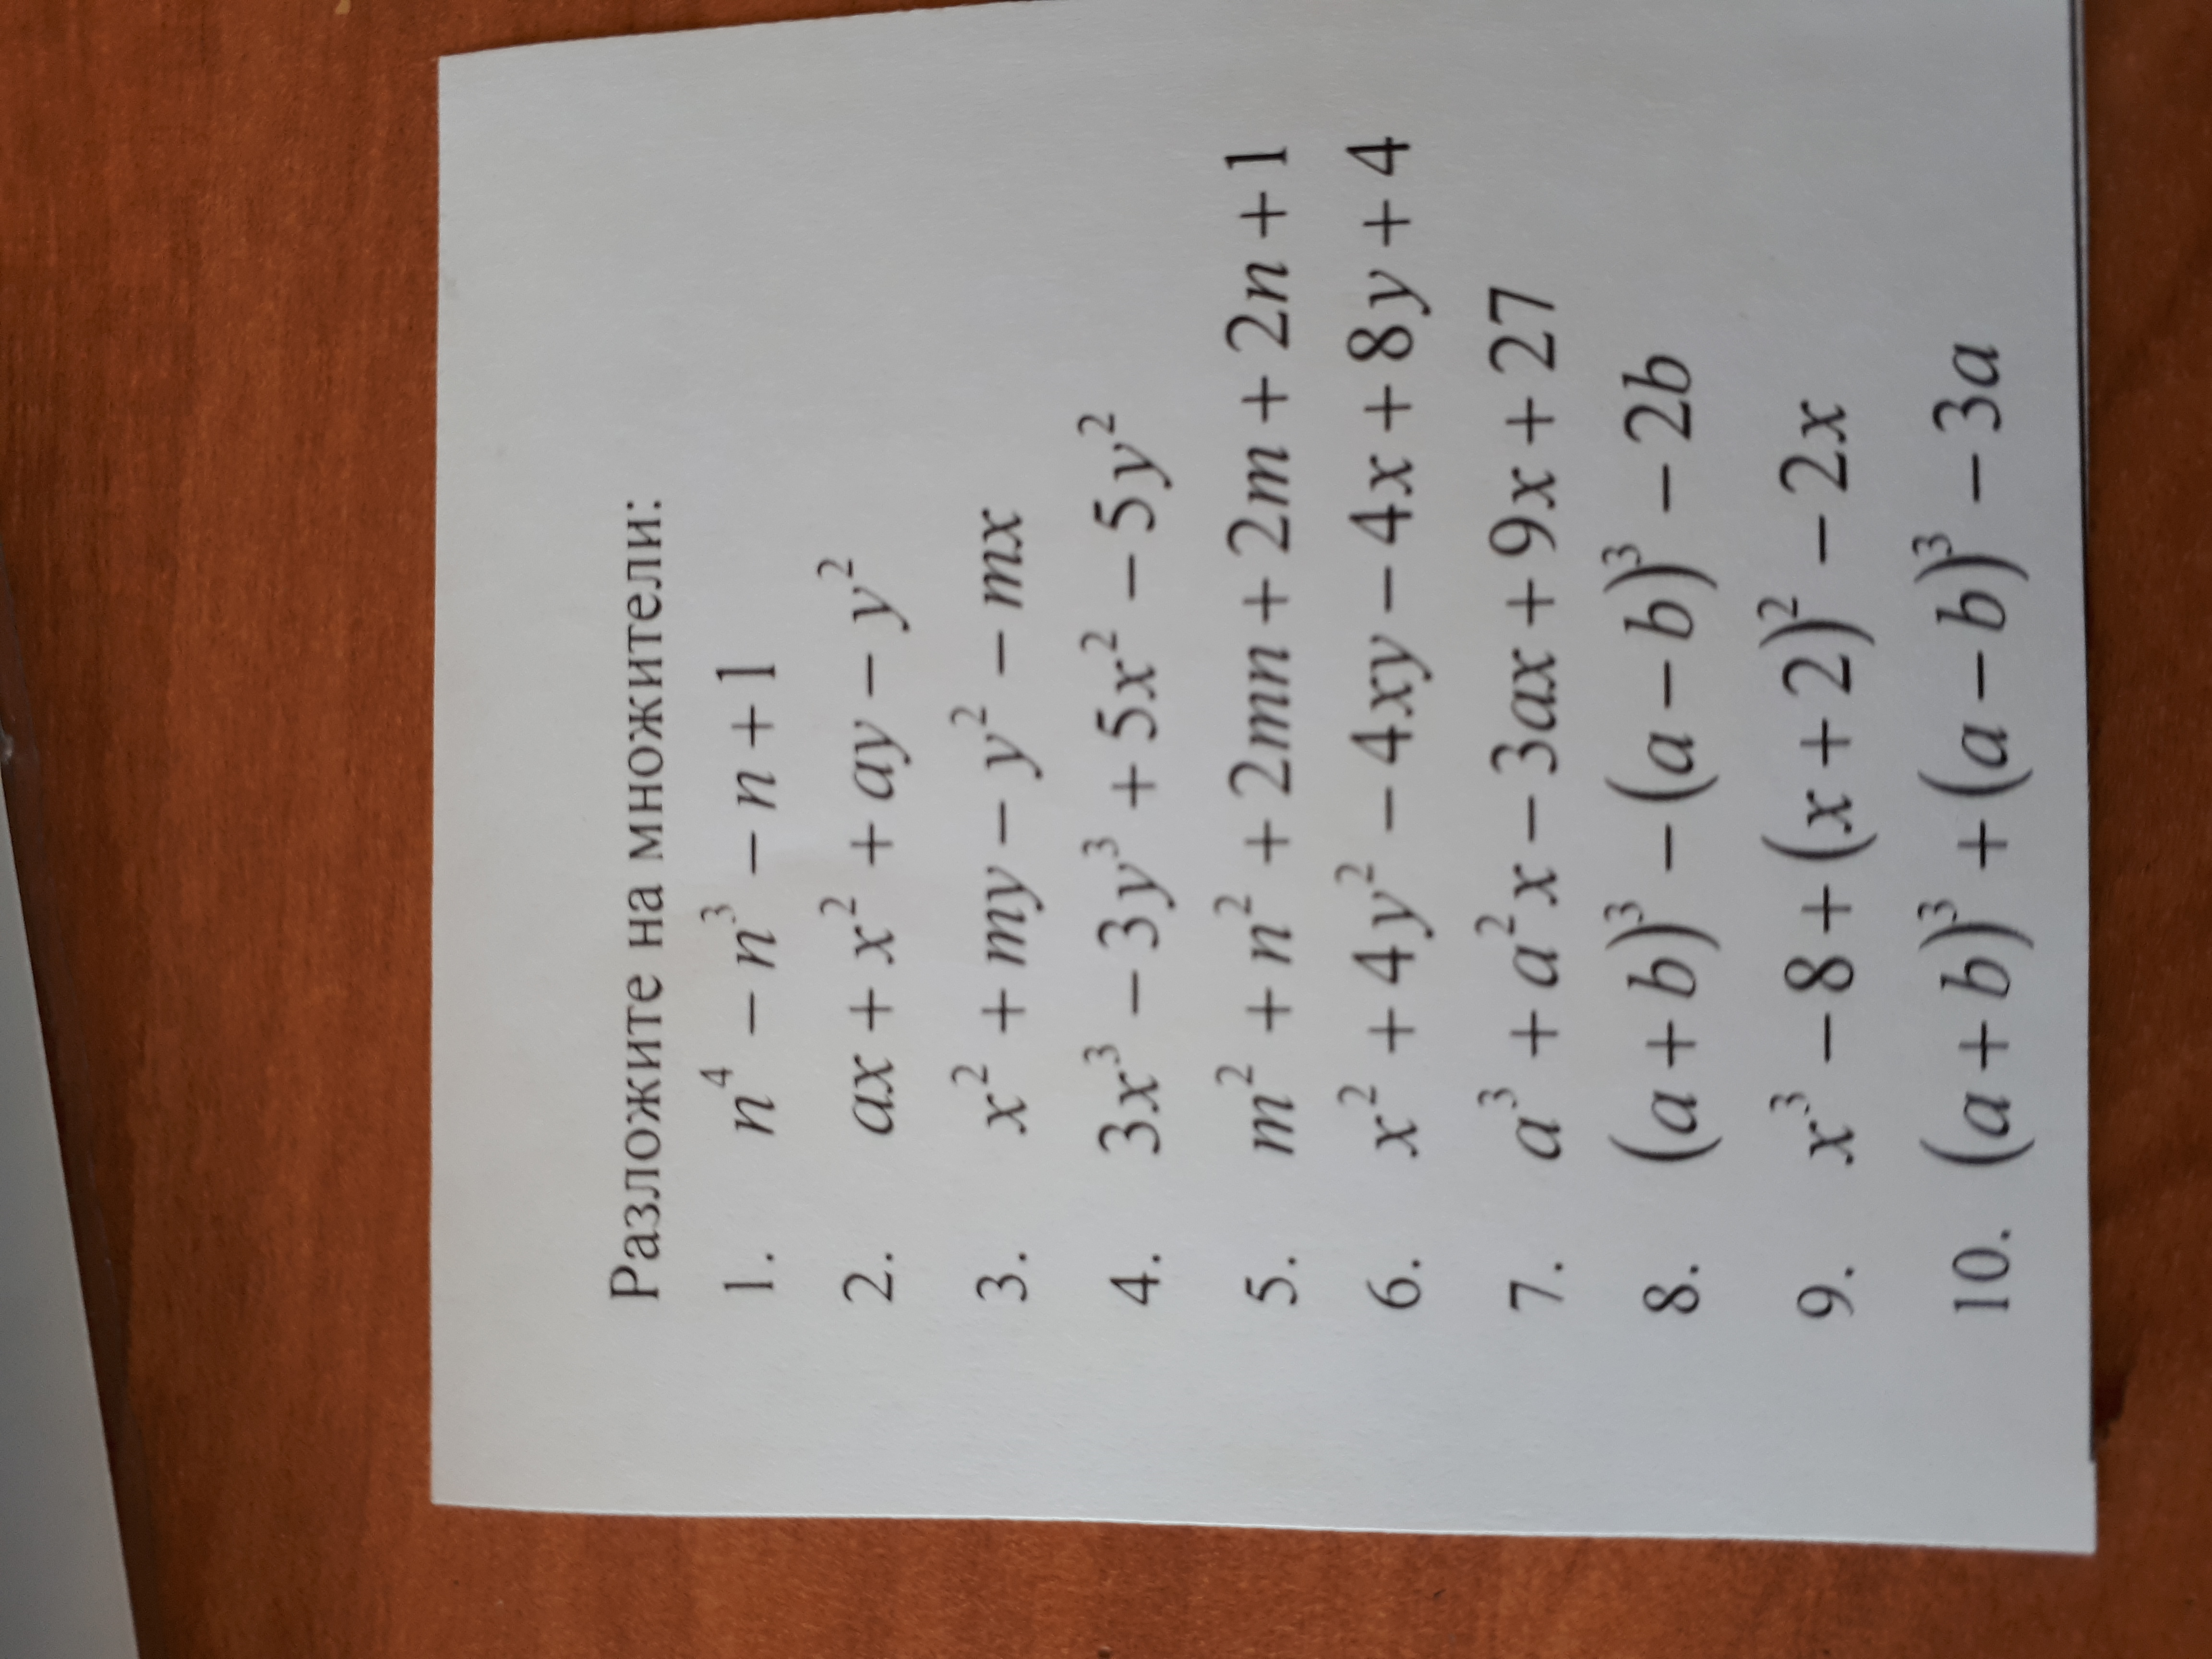 Разложите на множители:
1. n⁴ − n³ − n + 1
2. ax + x² + ay − y²
3. x² + my − y² − mx
4. 3x³ − 3y³ + 5x² − 5y²
5. m² + n² + 2mn + 2m + 2n + 1
6. x² + 4y² − 4xy − 4x + 8y + 4
7. a³ + a²x − 3ax + 9x + 27
8. (a + b)³ − (a − b)³ − 2b
9. x³ − 8 + (x + 2)² − 2x
10. (a + b)³ + (a − b)³ − 3a